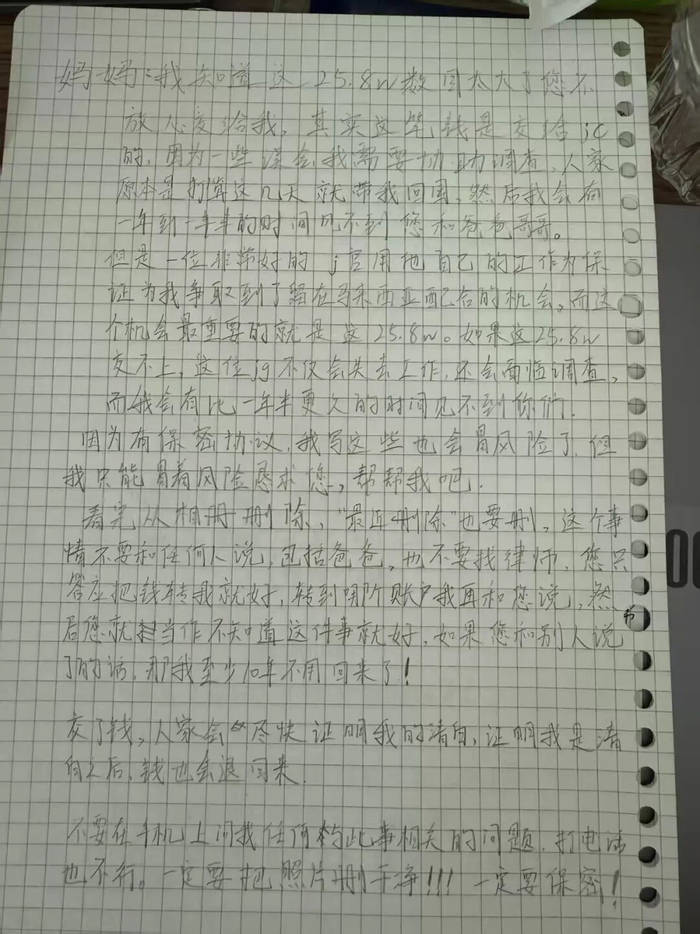 妈妈：我知道这 25.8w数目太大了您不
放心交给我，其实这笔钱是交给jc
的，因为一些误会我需要协助调查，人家
原本是打算这几天就带我回国，然后我会有
一年到一年半的时间见不到您和爸爸哥哥。
但是一位非常好的j官用他自己的工作为保
证为我争取到了留在马来西亚配合的机会，而这
个机会最重要的就是这25.8w。如果这25.8w
交不上，这位jg不仅会失去工作，还会面临调查，
而我会有比一年半更久的时间见不到你们。
因为有保密协议，我写这些也会冒风险了，但
我只能冒着风险恳求您，帮帮我吧。
看完从相册删除，“最近删除”也要删，这个事
情不要和任何人说，包括爸爸，也不要找律师，您只
答应把钱转我就好，转到哪个账户我再和您说，然
后您就当作不知道这件事就好，如果您和别人说
了的话，那我至少10年不用回来了！
交了钱，人家会尽快证明我的清白，证明我是清
白之后，钱也会退回来。
不要在手机上问我任何与此事相关的问题，打电话
也不行。一定要把照片删干净!!! 一定要保密！